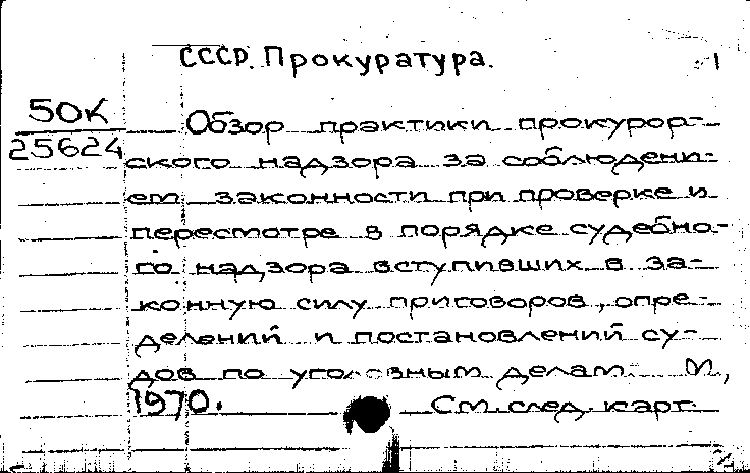 СССР. Прокуратура.
1
50К
25624
Обзор практики прокурор-
ского надзора за соблюдени-
ем законности при проверке и
пересмотре в порядке судебно-
го надзора вступивших в за-
конную силу приговоров, опре-
делений и постановлений су-
дов по уголовным делам. М.,
1970.
См. след. карт.